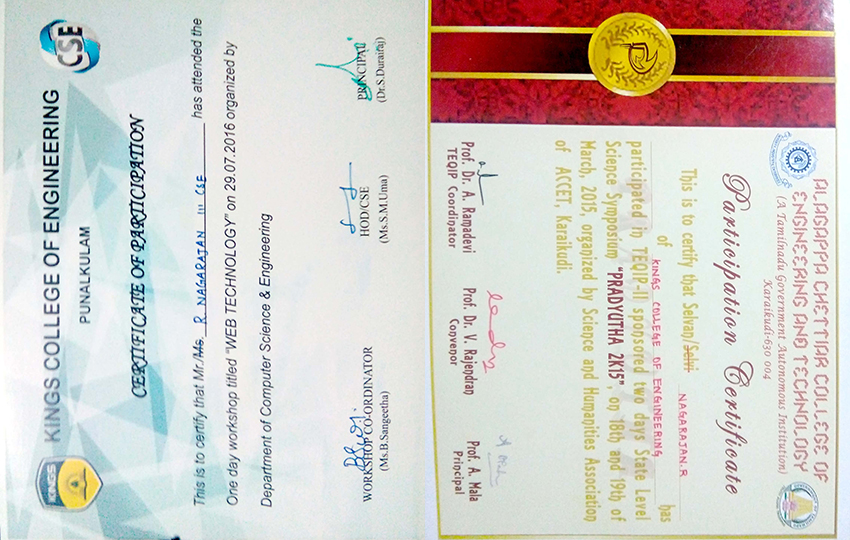 KINGS COLLEGE OF ENGINEERING
PUNALKULAM
CSE
KINGS
CERTIFICATE OF PARTICIPATION
This is to certify that Mr./Ms. R NAGARAJAN III CSE has attended the
One day workshop titled "WEB TECHNOLOGY" on 29.07.2016 organized by
Department of Computer Science & Engineering
WORKSHOP CO-ORDINATOR
(Ms.B.Sangeetha)
HOD/CSE
(Ms.S.M.Uma)
PRINCIPAL
(Dr.S.Durairaj)
ALAGAPPA CHETTIAR COLLEGE OF
ENGINEERING AND TECHNOLOGY
(A Tamilnadu Government Autonomous Institution)
Karaikudi-630 004
Participation Certificate
This is to certify that Selvan/Selvi NAGARAJAN.R
of KINGS COLLEGE OF ENGINEERING has
participated in TEQIP-II sponsored two days State Level
Science Symposium "PRADYUTHA 2K15", on 18th and 19th of
March, 2015, organized by Science and Humanities Association
of ACCET, Karaikudi.
Prof. Dr. A. Ramadevi
TEQIP Coordinator
Prof. Dr. V. Rajendran
Convenor
Prof. A. Mala
Principal